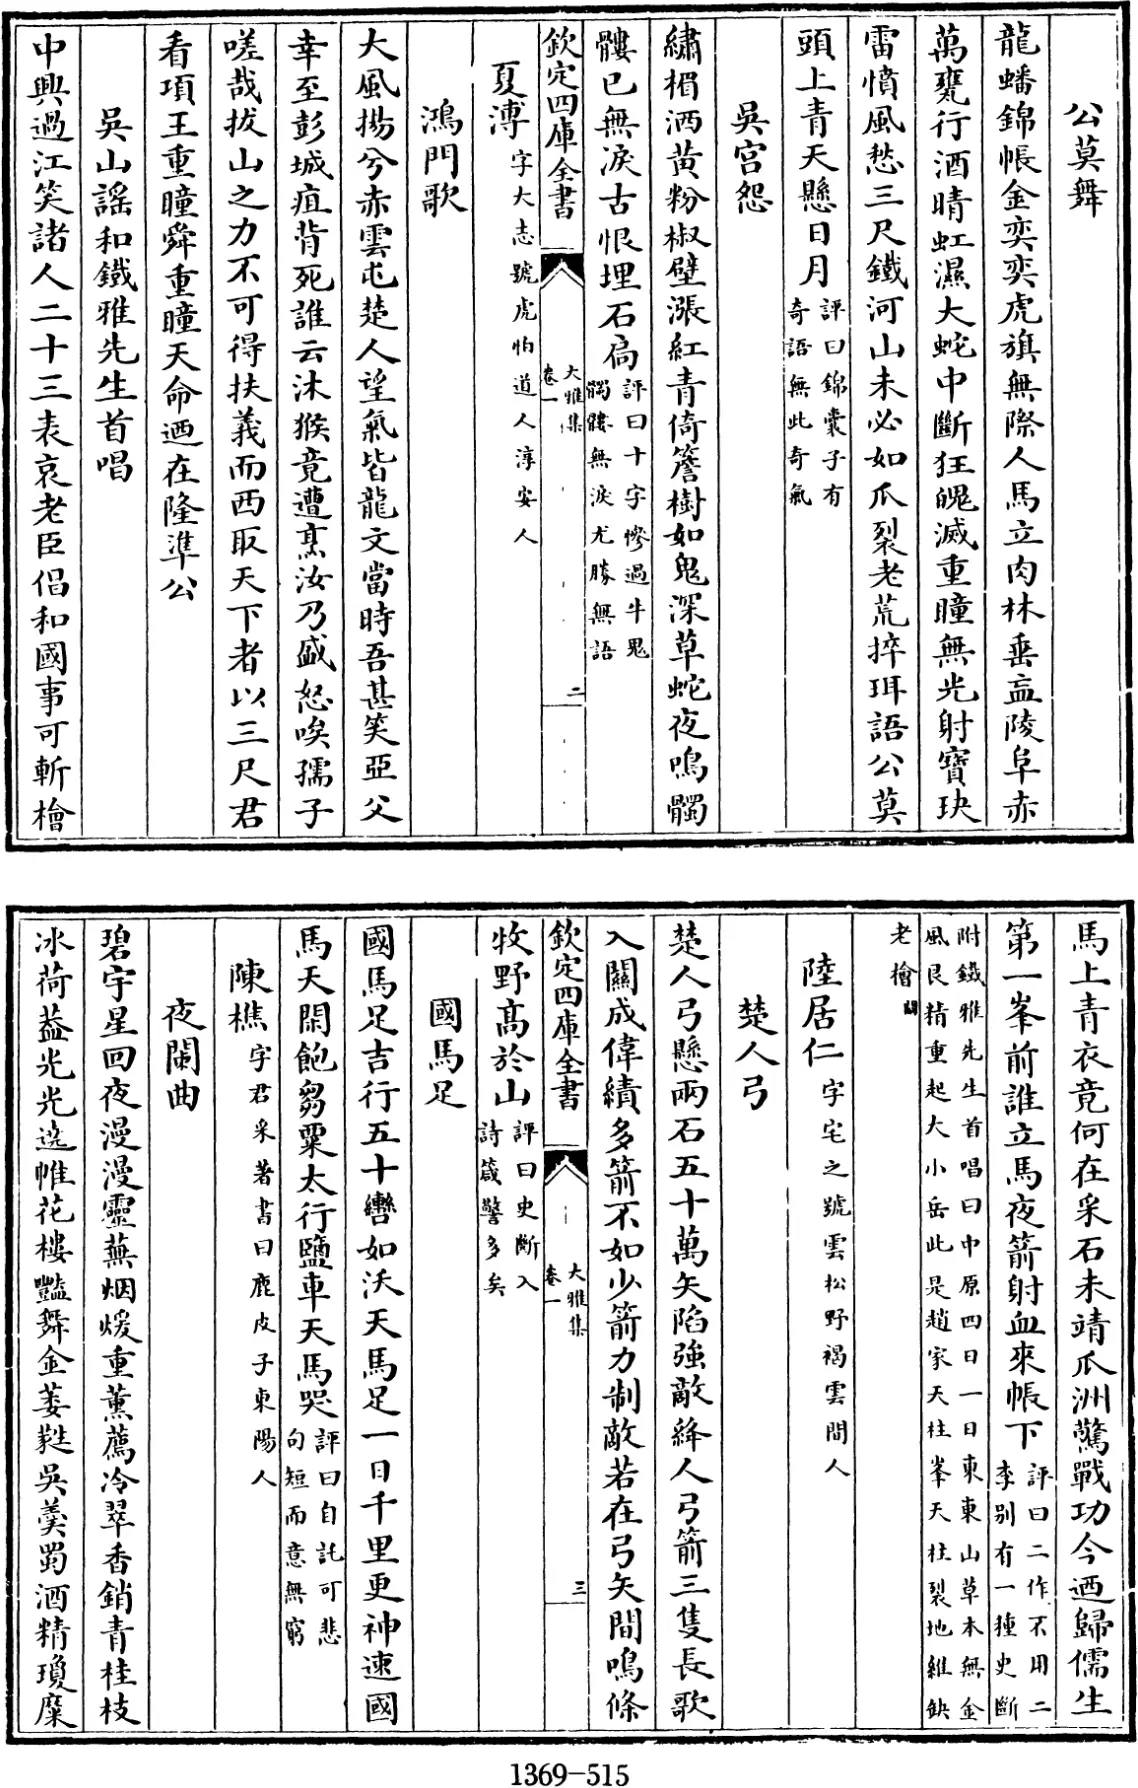 公莫舞
龍蟠錦帳金奕奕虎旗無際人馬立肉林垂盍陵阜赤
萬甕行酒晴虹濕大蛇中斷狂魄滅重瞳無光射寶玦
雷憤風愁三尺鐵河山未必如爪裂老荒捽珥語公莫
頭上青天懸日月評曰錦囊子有
奇語無此奇氣
吳宫怨
繡楣洒黄粉椒壁漲紅青倚簷樹如鬼深草蛇夜鳴髑
髏已無淚古恨埋石扃評曰十字慘過牛鬼
髑髏無淚尤勝無語
欽定四庫全書
大雅集
卷一
二
夏溥字大志號虎怕道人淳安人
鴻門歌
大風揚兮赤雲屯楚人望氣皆龍文當時吾甚笑亞父
幸至彭城疽背死誰云沐猴竟遭烹汝乃盛怒唉孺子
嗟哉拔山之力不可得扶義而西取天下者以三尺君
看項王重瞳舜重瞳天命迺在隆準公
吳山謡和鐵雅先生首唱
中興過江笑諸人二十三表哀老臣倡和國事可斬檜
馬上青衣竟何在采石未靖爪洲驚戰功今迺歸儒生
第一峯前誰立馬夜箭射血來帳下評曰二作不用二
李别有一種史斷
附鐵雅先生首唱曰中原四日一日東東山草本無金
風艮精重起大小岳此是趙家天柱峯天柱裂地維缺
老檜
陸居仁字宅之號雲松野褐雲間人
楚人弓
楚人弓懸兩石五十萬矢陷強敵絳人弓箭三隻長歌
入關成偉績多箭不如少箭力制敵若在弓矢間鳴條
欽定四庫全書
大雅集
卷一
三
牧野髙於山評曰史斷入
詩箴警多矣
國馬足
國馬足吉行五十轡如沃天馬足一日千里更神速國
馬天閑飽芻粟太行鹽車天馬哭評曰自託可悲
句短而意無窮
陳樵字君采著書曰鹿皮子東陽人
夜闌曲
碧宇星回夜漫漫靈蕪烟煖重薰薦冷翠香銷青桂枝
冰荷葢光光迭帷花樓豔舞金萎甤吳羹蜀酒精瓊糜
1369-515